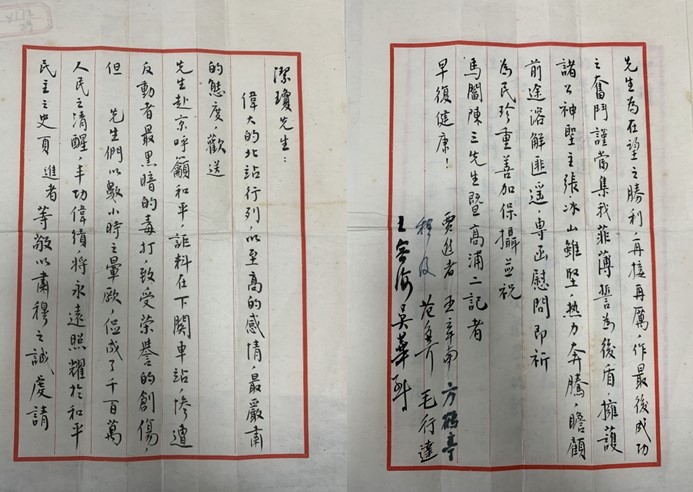 潔瓊先生：
偉大的北站行列，以至高的感情，最嚴肅
的態度，歡送
先生赴京呼籲和平，詎料在下關車站，慘遭
反動者最黑暗的毒打，致受榮譽的創傷，
但　先生們以數小時之暈厥，促成了千百萬
人民之清醒，丰功偉績將永遠照耀於和平
民主之史頁　進者等敬以肅穆之誠虔請
先生為在望之勝利，再接再厲，作最後成功
之奮鬥，謹當集我菲薄誓為後盾，擁護
諸公神聖主張，冰山雖堅，熱力奔騰，瞻顧
前途溶解匪遥，專函慰問即祈
為民珍重善加保攝並祝
馬閻陳三先生暨高浦二記者
早復健康！
賈進者　王辛南　方
范　毛行達
王　吳華